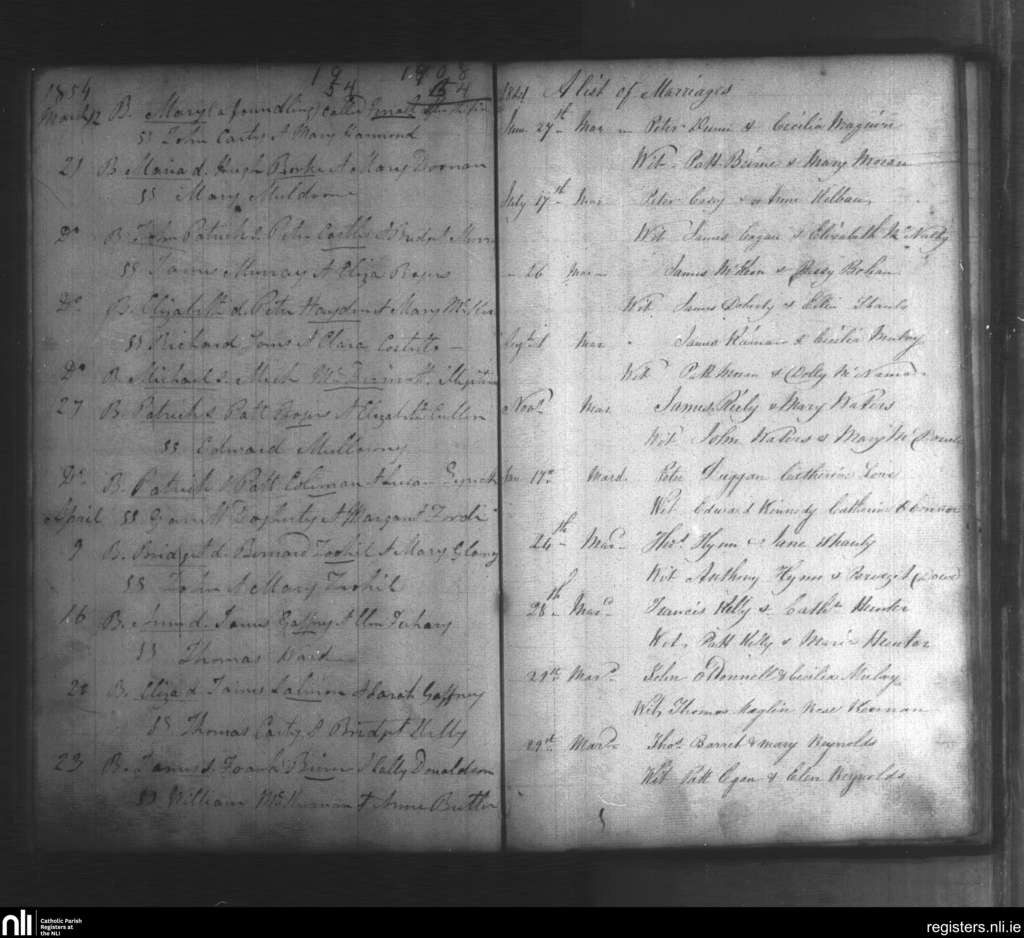 1854
19 1908
54 54
March 12 B. Mary (a foundling) called
SS John Carty & Mary Gamond
21 B Maria d. Hugh Burke & Mary Doonan
SS Mary Muldoon
Do B. John Patrick s. Peter Costlo & Bridget
SS James Murray & Eliza Rogers
Do B. Elizabeth d. Peter Haydon & Mary
SS Richard & Clara Costello
Do B. Michael s. Mich McDermott
27 B. Patrick s Patt Rogers & Elizabeth Cullen
SS Edward Mulloony
Do B. Patrick s Patt Coliman & Susan
April SS Garrett Dogherty & Margaret Forde
9 B. Bridget d. Bernard Toohil & Mary Glany
SS John & Mary Toohil
16 B. Anne d. James Gaffney & Ellen
SS Thomas Ward
20 B. Eliza d. James & Sarah Gaffney
SS Thomas Carty & Bridget Kelly
23 B. James s. Frank Birne & Cally Donaldson
SS William McKiernan & Anne Butler
1844 A list of Marriages
June 27th Mar Peter & Cecilia Maguire
Wit Patt Beirne & Mary Moran
July 17th Mar Peter Casey & Anne
Wit James Cogan & Elizabeth McNulty
26 Mar James McKeon & Bessy Bohan
Wit James Doherty & Ellen
Mar James & Cecilia Mulvy
Wit Patt Moran & Dolly McNamara
Novr Mar James Reily & Mary Waters
Wit John Waters & Mary
Jan 17th Mard Peter Duggan Catherine Love
Wit Edward Kennedy Catherine O Connor
24th Mard Thos Flynn & Jane Shanly
Wit Anthony Flynn & Bridget
28th Mard Francis Kelly & Cathn Hunter
Wit Patt Kelly & Maria Hunter
29th Mard John O'Donnell & Cecilia Mulvy
Wit Thomas Maglin Rose Kernan
29th Mard Thos Barret & Mary Reynolds
Wit Patt Egan & Elen Reynolds
nli Catholic Parish
Registers at
the NLI
registers.nli.ie